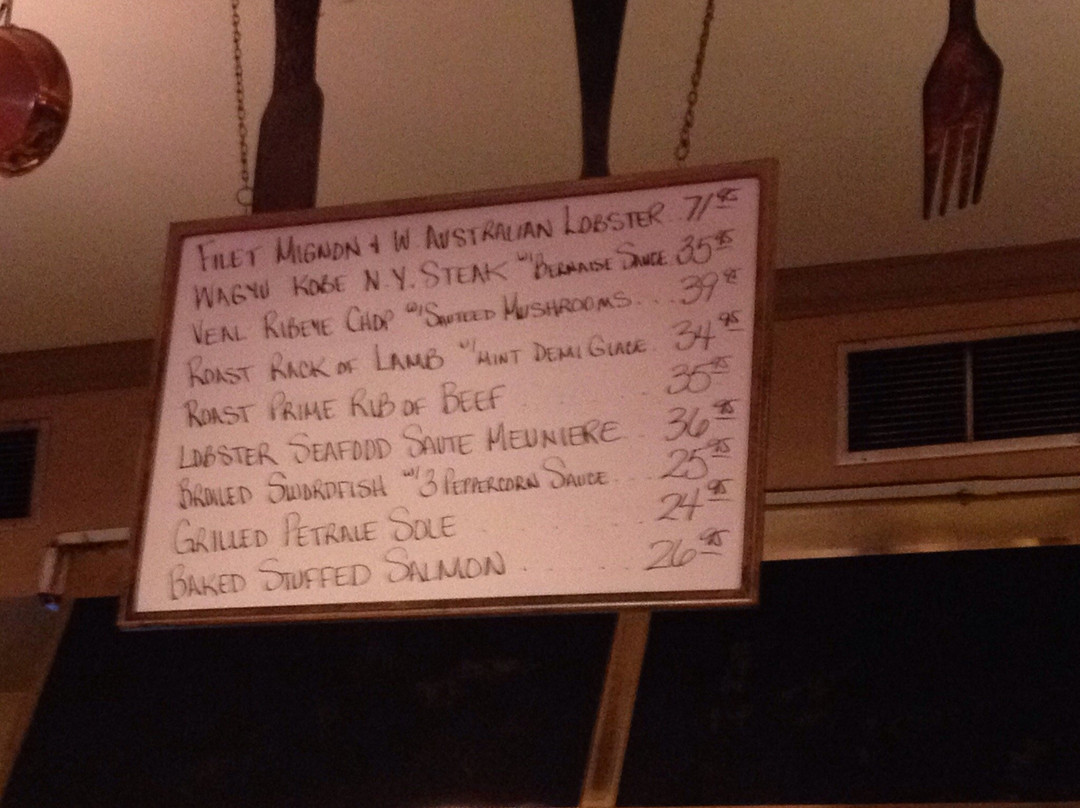 FILET MIGNON & W. AUSTRALIAN LOBSTER.. 71 95
WAGYU KOBE N.Y. STEAK W/ BERNAISE SAUCE 35 95
VEAL RIBEYE CHOP W/ SAUTEED MUSHROOMS... 39 95
ROAST RACK OF LAMB W/ MINT DEMI GLACE. 34 95
ROAST PRIME RIB OF BEEF ...... 35 95
LOBSTER SEAFOOD SAUTE MEUNIERE .. 36 95
BROILED SWORDFISH W/ 3 PEPPERCORN SAUCE... 25 95
GRILLED PETRALE SOLE ...... 24 95
BAKED STUFFED SALMON ..... 26 95